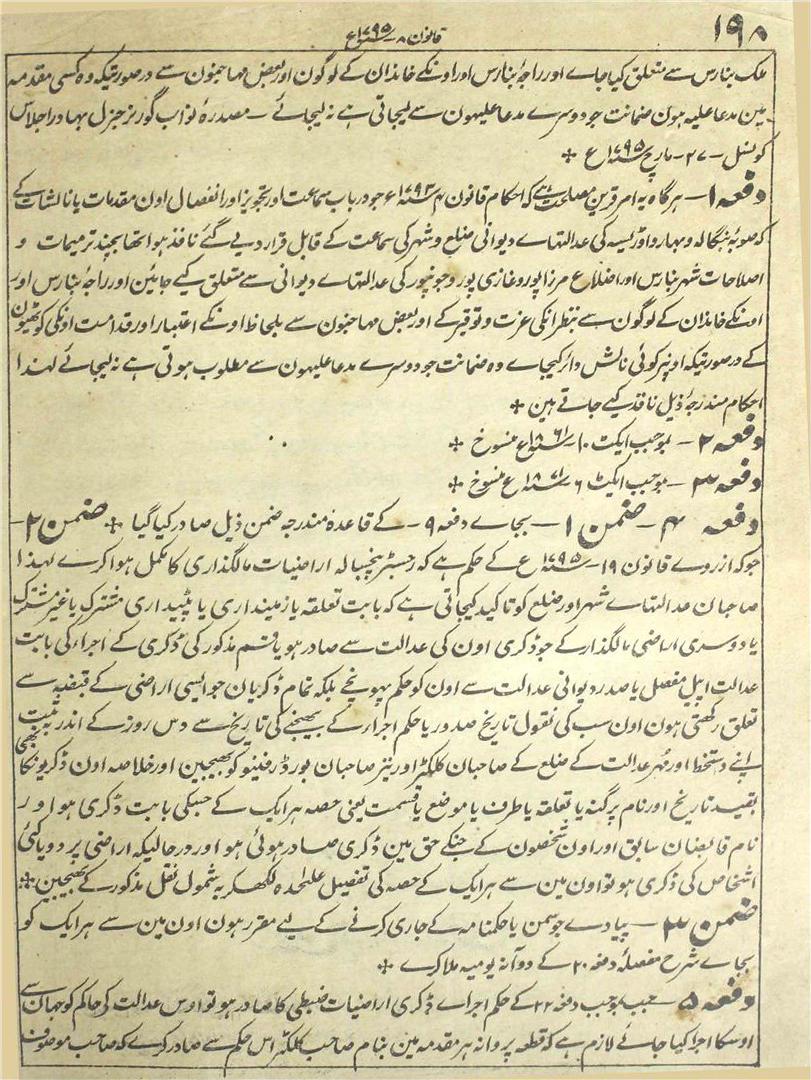 ۱۹۸
قانون ۸ - سنہ ۱۷۹۵ع
ملک بنارس سے متعلق کیا جاے اور راجۂ بنارس اور اونکے خاندان کے لوگون اور بعض مہاجنون سے درصورتیکہ وہ کسی مقدمہ
مین مدعا علیہ ہون ضمانت جو دوسرے مدعا علیہون سے لیجاتی ہے نہ لیجائے - مصدرۂ نواب گورنر جنرل بہادر اجلاس
کونسل - ۲۷ - مارچ سنہ ۱۷۹۵ع +
دفعہ ۱ - ہرگاہ یہ امر قرین مصلحت ہے کہ احکام قانون ۴ سنہ ۱۷۹۳ع جو درباب سماعت اور تجویز اور انفصال اون مقدمات یا نالشات کے
کہ صوبۂ بنگالہ و بہار و اوڑیسہ کی عدالتہاے دیوانی ضلع و شہر کی سماعت کے قابل قرار دیے گئے نافذ ہوا تھا بچند ترمیمات و
اصلاحات شہر بنارس اور اضلاع مرزاپور و غازی پور و جونپور کی عدالتہاے دیوانی سے متعلق کیے جائین اور راجۂ بنارس اور
اونکے خاندان کے لوگون سے بنظر انکی عزت و توقیر کے اور بعض مہاجنون سے بلحاظ اونکے اعتبار اور قدامت اونکی کوٹھیون
کے درصورتیکہ اونپر کوئی نالش دائر کیجاے وہ ضمانت جو دوسرے مدعا علیہون سے مطلوب ہوتی ہے نہ لیجائے لہذا
احکام مندرجۂ ذیل نافذ کیے جاتے ہین +
دفعہ ۲ - بموجب ایکٹ ۱۰ - سنہ ۱۸۶۱ع منسوخ +
دفعہ ۳ - بموجب ایکٹ ۶ - سنہ ۱۸۷۱ع منسوخ +
دفعہ ۴ - ضمن ۱ - بجاے دفعہ ۹ - کے قاعدہ مندرجہ ضمن ذیل صادر کیا گیا + ضمن ۲ -
جو کہ ازروے قانون ۱۹ - سنہ ۱۷۹۵ع کے حکم ہے کہ رجسٹر پنجسالہ اراضیات مالگذاری کا مکمل ہوا کرے لہذا
صاحبان عدالتہاے شہر اور ضلع کو تاکید کیجاتی ہے کہ بابت تعلقہ یا زمینداری یا پٹیداری مشترک یا غیر مشترک
یا دوسری اراضی مالگذار کے جو ڈکری اون کی عدالت سے صادر ہو یا قسم مذکور کی ڈکری کے اجراء کی بابت
عدالت اپیل مفصل یا صدر دیوانی عدالت سے اون کو حکم پہونچے بلکہ تمام ڈکریان جو ایسی اراضی کے قبضہ سے
تعلق رکھتی ہون اون سب کی نقول تاریخ صدور یا حکم اجراء کے بھیجنے کی تاریخ سے دس روز کے اندر بثبت
اپنے دستخط اور مُہر عدالت کے ضلع کے صاحبان کلکٹر اور نیز صاحبان بورڈ رفینیو کو بھیجین اور خلاصہ اون ڈکریونکا بھی
بقید تاریخ اور نام پرگنہ یا تعلقہ یا طرف یا موضع یا قسمت یعنی حصہ ہر ایک کے جسکی بابت ڈکری ہو اور
نام قابضان سابق اور اون شخصون کے جنکے حق مین ڈکری صادر ہوئی ہو اور درحالیکہ اراضی پر دو یا کئی
اشخاص کی ڈکری ہو تو اون مین سے ہر ایک کے حصہ کی تفصیل علٰحدہ لکھکر بہ شمول نقل مذکور کے بھیجین +
ضمن ۳ - پیادے جو سمن یا حکمنامہ کے جاری کرنے کے لیے مقرر ہون اون مین سے ہر ایک کو
بجاے شرح مفصلۂ دفعہ ۲۰ کے دو آنہ یومیہ ملا کرے +
دفعہ ۵ - جب بموجب دفعہ ۲۲ کے حکم اجراے ڈکری اراضیات ضبطی کا صادر ہو تو اوس عدالت کی حاکم کو جہان سے
اوسکا اجرا کیا جائے لازم ہے کہ قطعہ پروانہ ہر مقدمہ مین بنام صاحب کلکٹر اس حکم سے صادر کرے کہ صاحب موصوف